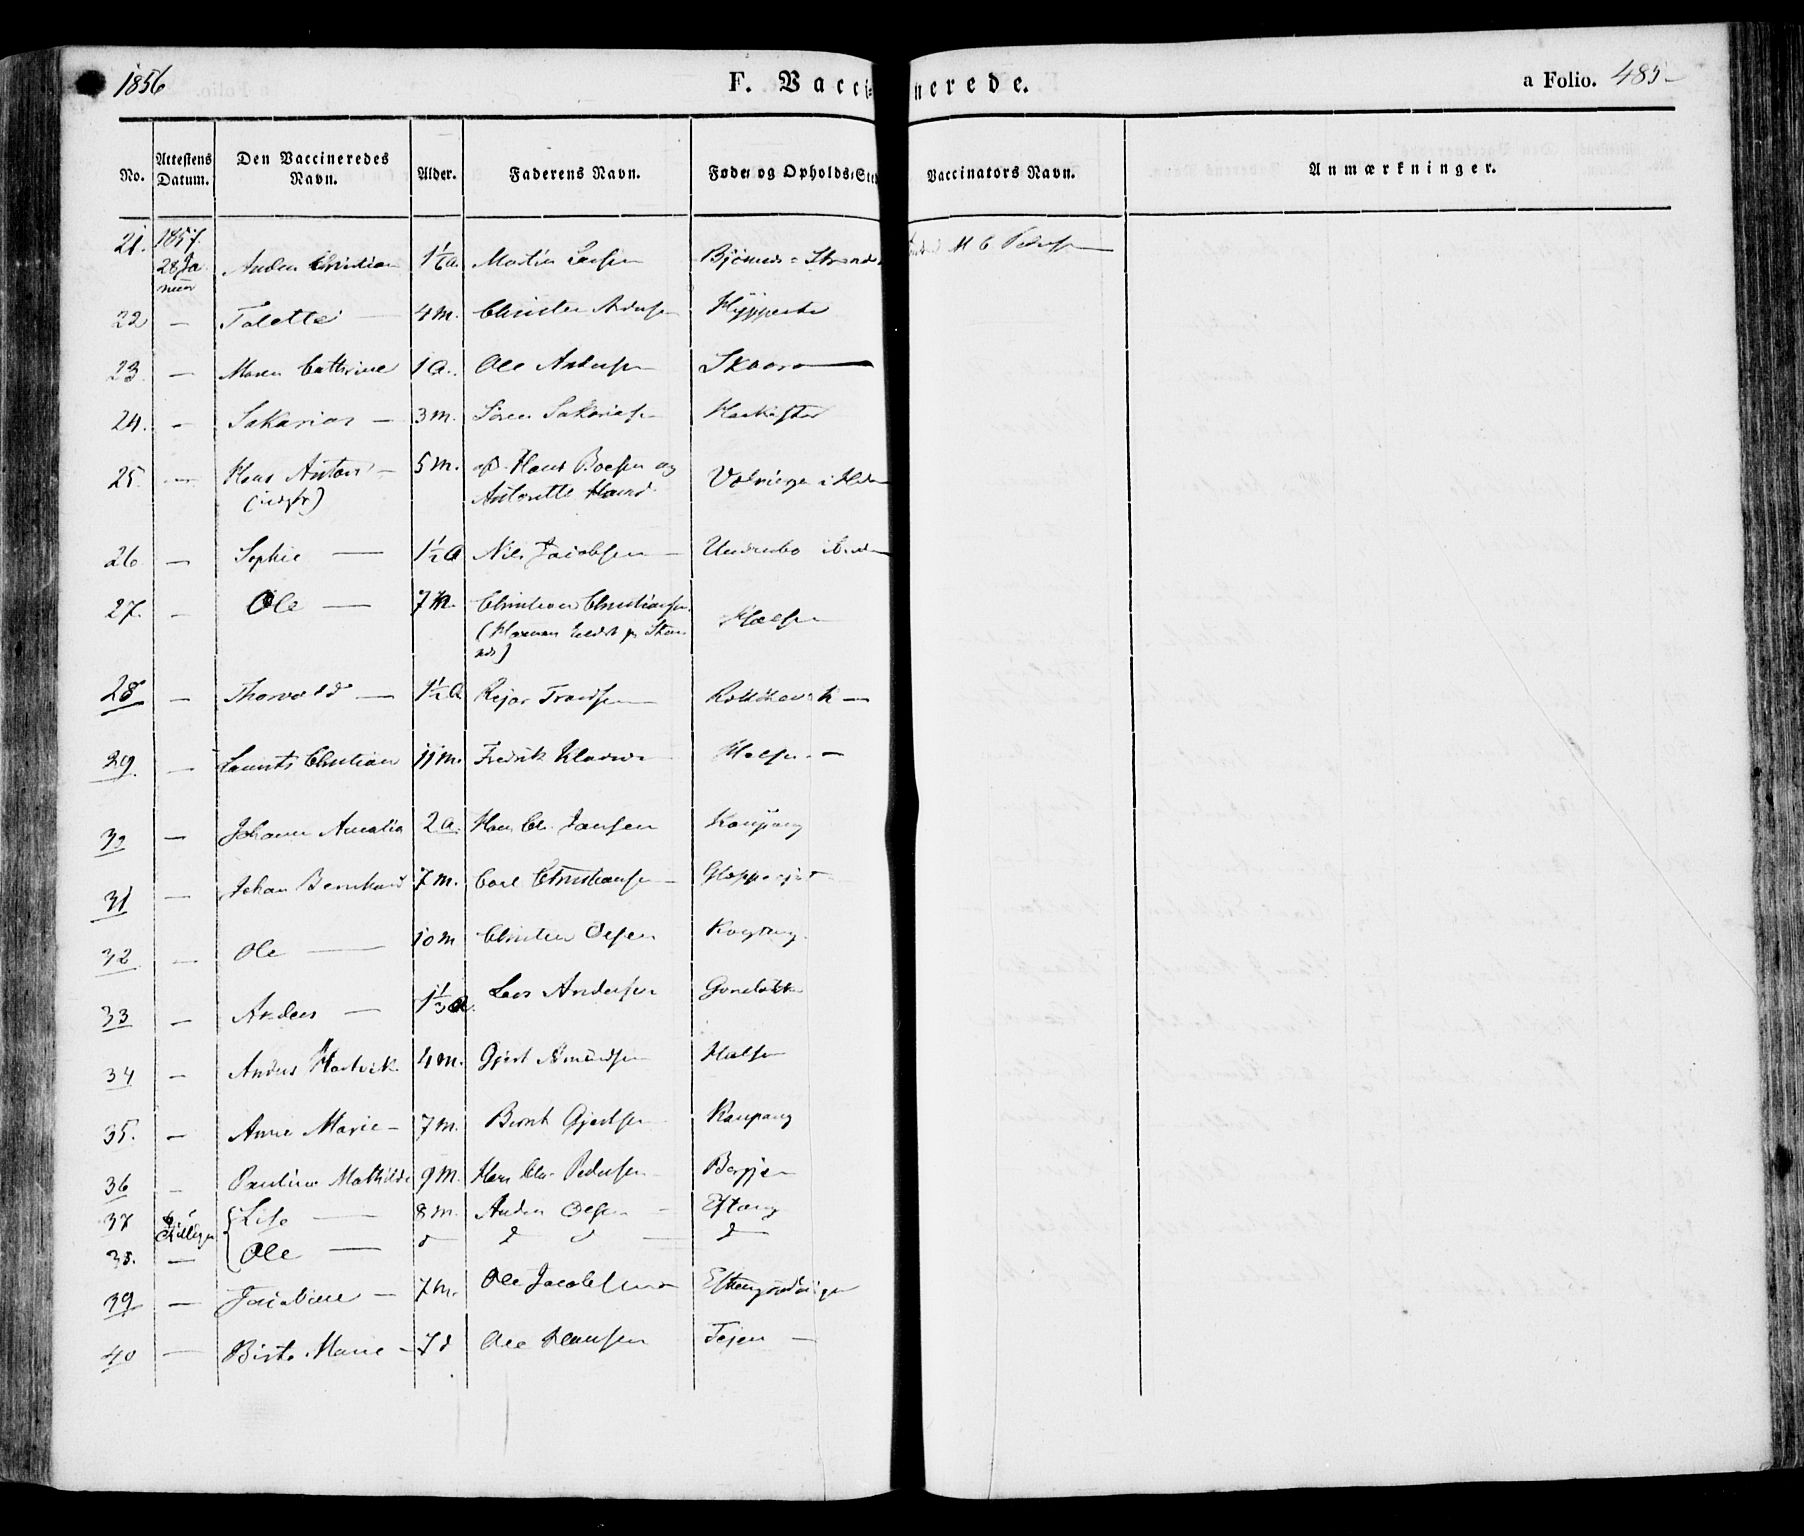 1856 F. Vaccinerede. a Folio. 485
No. Attestens Datum. Den Vaccineredes Navn. Alder. Faderens Navn. Føde- og Opholds-Sted Vaccinators Navn. Anmærkninger.
21. 1857. 28 Januar Anders Christian 1 1/6 a. Martin Larsen Bjönnes Strand M C Pedersen
22 — Talette — 4 m. Christen Andersen
23. — Maren Cathrine 1 a. Ole Andersen Skaara
24. — Sakarias — 3 m. Sören Sakariasen
25. — Hans Anton — 5 m. Hans Boesen og
(uægte) Antonette Hansd.
26. — Sophie — 1 1/2 a Nils Jacobsen — Undersbo
27. — Ole — 7 m. Christian Christiansen Halsen
28 — Thorvald — 1 1/2 a Rejor
29. — Laurits Christian 11 m. Fredrik Klausen Halsen —
30 — Johanne Amalia 2 a. Hans Chr. Jansen Kaupang
31 — Johan Bernhard 7 m. Carl Christiansen —
32 — Ole — 10 m Christen Olsen Kaupang.
33 — Anders — 1 1/3 a. Lars Andersen
34 — Anders Hartvik 4 m. Gjert Amundsen Halsen
35. — Anne Marie — 7 m. Bernt Gjertsen Kaupang
36 — Pauline Mathilde 9 m. Hans Chr. Pedersen Bergjen
37 Tvillinger Lise — 8 m. Anders Olsen — Eftang
38. — Ole — d d d — d
39 — Jacobine — 7 m. Ole Jacobsen Eftangrödningen
40 — Birte Marie — 7 d Ole Hansen Fejen —